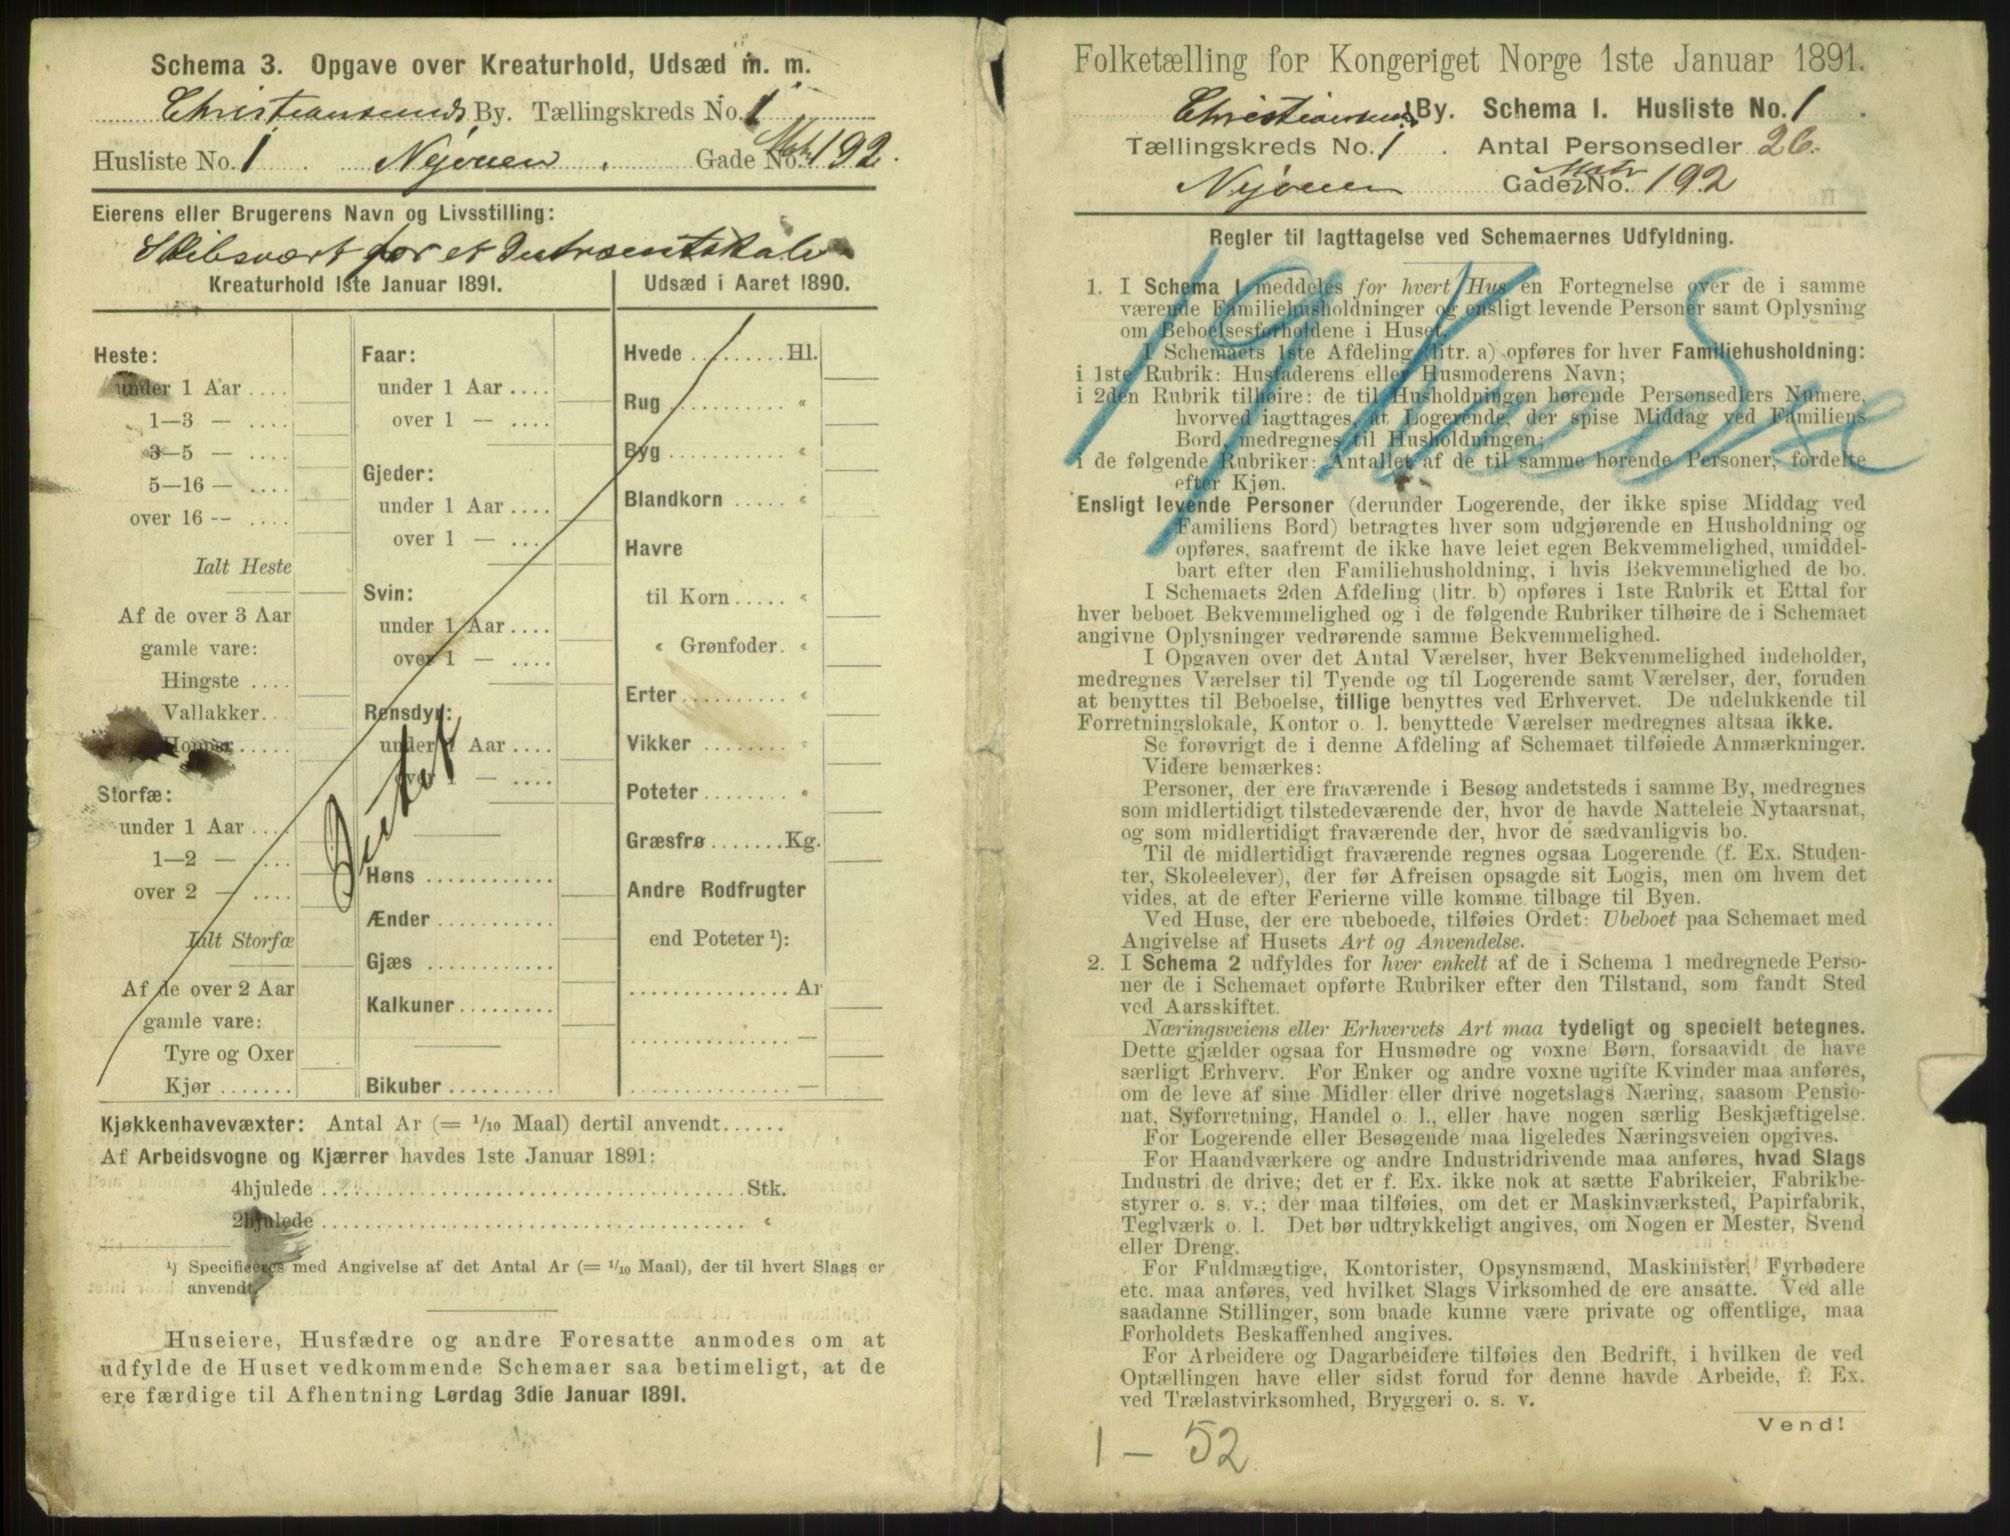 Schema 3. Opgave over Kreaturhold, Udsæd m. m.
Christiansunds By. Tællingskreds No. 1
Husliste No. 1 Nyöuen Gade No. Matr 192.
Eierens eller Brugerens Navn og Livsstilling:
Skibsværft for et
Kreaturhold 1ste Januar 1891.
Heste:
under 1 Aar ....
1—3 — ....
3—5 — ....
5—16 — ....
over 16 -- ....
Ialt Heste
Af de over 3 Aar
gamle vare:
Hingste ....
Vallakker...
Hopper.....
Storfæ:
under 1 Aar ....
1—2 — ....
over 2 — ....
Ialt Storfæ
Af de over 2 Aar
gamle vare:
Tyre og Oxer
Kjør .......
Faar:
under 1 Aar ....
over 1 — ....
Gjeder:
under 1 Aar ....
over 1 — ....
Svin:
under 1 Aar....
over 1 — ....
Rensdyr:
under 1 Aar ....
over 1 — ....
Høns ............
Ænder ...........
Gjæs ............
Kalkuner.........
Bikuber ..........
Intet
Udsæd i Aaret 1890.
Hvede .........Hl.
Rug ........... «
Byg ........... «
Blandkorn ..... «
Havre
til Korn..... «
« Grønfoder. «
Erter ......... «
Vikker ........ «
Poteter........ «
Græsfrø.......Kg.
Andre Rodfrugter
end Poteter ¹):
............... Ar
............... —
............... —
Kjøkkenhavevæxter: Antal Ar (= 1/10 Maal) dertil anvendt......
Af Arbeidsvogne og Kjærrer havdes 1ste Januar 1891:
4hjulede ..................................Stk.
2hjulede .................................. «
¹) Specificeres med Angivelse af det Antal Ar (= 1/10 Maal), der til hvert Slags er
anvendt.
Huseiere, Husfædre og andre Foresatte anmodes om at
udfylde de Huset vedkommende Schemaer saa betimeligt, at de
ere færdige til Afhentning Lørdag 3die Januar 1891.
Folketælling for Kongeriget Norge 1ste Januar 1891.
Christiansunds By. Schema I. Husliste No. 1
Tællingskreds No. 1 . Antal Personsedler 26.
Nyöuen Gade No. Matr 192
Regler til Iagttagelse ved Schemaernes Udfyldning.
1. I Schema 1 meddeles for hvert Hus en Fortegnelse over de i samme
værende Familiehusholdninger og ensligt levende Personer samt Oplysning
om Beboelsesforholdene i Huset.
I Schemaets 1ste Afdeling (litr. a) opføres for hver Familiehusholdning:
i 1ste Rubrik: Husfaderens eller Husmoderens Navn;
i 2den Rubrik tilhøire: de til Husholdningen hørende Personsedlers Numere,
hvorved iagttages, at Logerende, der spise Middag ved Familiens
Bord, medregnes til Husholdningen;
i de følgende Rubriker: Antallet af de til samme hørende Personer, fordelte
efter Kjøn.
Ensligt levende Personer (derunder Logerende, der ikke spise Middag ved
Familiens Bord) betragtes hver som udgjørende en Husholdning og
opføres, saafremt de ikke have leiet egen Bekvemmelighed, umiddel-
bart efter den Familiehusholdning, i hvis Bekvemmelighed de bo.
I Schemaets 2den Afdeling (litr. b) opføres i 1ste Rubrik et Ettal for
hver beboet Bekvemmelighed og i de følgende Rubriker tilhøire de i Schemaet
angivne Oplysninger vedrørende samme Bekvemmelighed.
I Opgaven over det Antal Værelser, hver Bekvemmelighed indeholder,
medregnes Værelser til Tyende og til Logerende samt Værelser, der, foruden
at benyttes til Beboelse, tillige benyttes ved Erhvervet. De udelukkende til
Forretningslokale, Kontor o. l. benyttede Værelser medregnes altsaa ikke.
Se forøvrigt de i denne Afdeling af Schemaet tilføiede Anmærkninger.
Videre bemærkes:
Personer, der ere fraværende i Besøg andetsteds i samme By, medregnes
som midlertidigt tilstedeværende der, hvor de havde Natteleie Nytaarsnat,
og som midlertidigt fraværende der, hvor de sædvanligvis bo.
Til de midlertidigt fraværende regnes ogsaa Logerende (f. Ex. Studen-
ter, Skoleelever), der før Afreisen opsagde sit Logis, men om hvem det
vides, at de efter Ferierne ville komme tilbage til Byen.
Ved Huse, der ere ubeboede, tilføies Ordet: Ubeboet paa Schemaet med
Angivelse af Husets Art og Anvendelse.
2. I Schema 2 udfyldes for hver enkelt af de i Schema 1 medregnede Perso-
ner de i Schemaet opførte Rubriker efter den Tilstand, som fandt Sted
ved Aarsskiftet.
Næringsveiens eller Erhvervets Art maa tydeligt og specielt betegnes.
Dette gjælder ogsaa for Husmødre og voxne Børn, forsaavidt de have
særligt Erhverv. For Enker og andre voxne ugifte Kvinder maa anføres,
om de leve af sine Midler eller drive nogetslags Næring, saasom Pensio-
nat, Syforretning, Handel o. l., eller have nogen særlig Beskjæftigelse.
For Logerende eller Besøgende maa ligeledes Næringsveien opgives.
For Haandværkere og andre Industridrivende maa anføres, hvad Slags
Industri de drive; det er f. Ex. ikke nok at sætte Fabrikeier, Fabrikbe-
styrer o. s. v.; der maa tilføies, om det er Maskinværksted, Papirfabrik,
Teglværk o. l. Det bør udtrykkeligt angives, om Nogen er Mester, Svend
eller Dreng.
For Fuldmægtige, Kontorister, Opsynsmænd, Maskinister, Fyrbødere
etc. maa anføres, ved hvilket Slags Virksomhed de ere ansatte. Ved alle
saadanne Stillinger, som baade kunne være private og offentlige, maa
Forholdets Beskaffenhed angives.
For Arbeidere og Dagarbeidere tilføies den Bedrift, i hvilken de ved
Optællingen have eller sidst forud for denne havde Arbeide, f. Ex.
ved Trælastvirksomhed, Bryggeri o. s. v.
Vend!
1 — 52